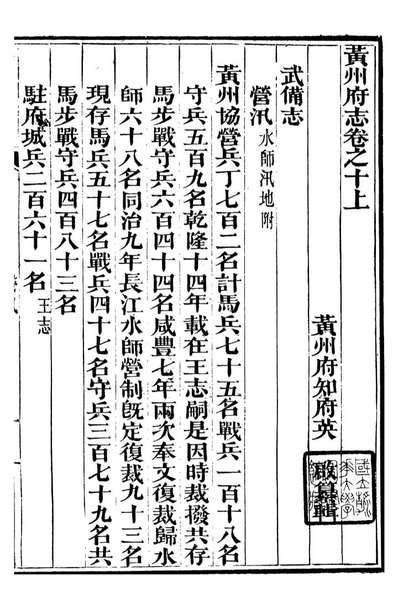 黃州府志卷之十上
黃州府知府英啟纂輯
武備志
營汛水師汛地附
黃州協營兵丁七百二名計馬兵七十五名戰兵一百十八名
守兵五百九名乾隆十四年載在王志嗣是因時裁撥共存
馬步戰守兵六百四十四名咸豐七年兩次奉文復裁歸水
師六十八名同治九年長江水師營制旣定復裁九十三名
現存馬兵五十七名戰兵四十七名守兵三百七十九名共
馬步戰守兵四百八十三名
駐府城兵二百六十一名王志